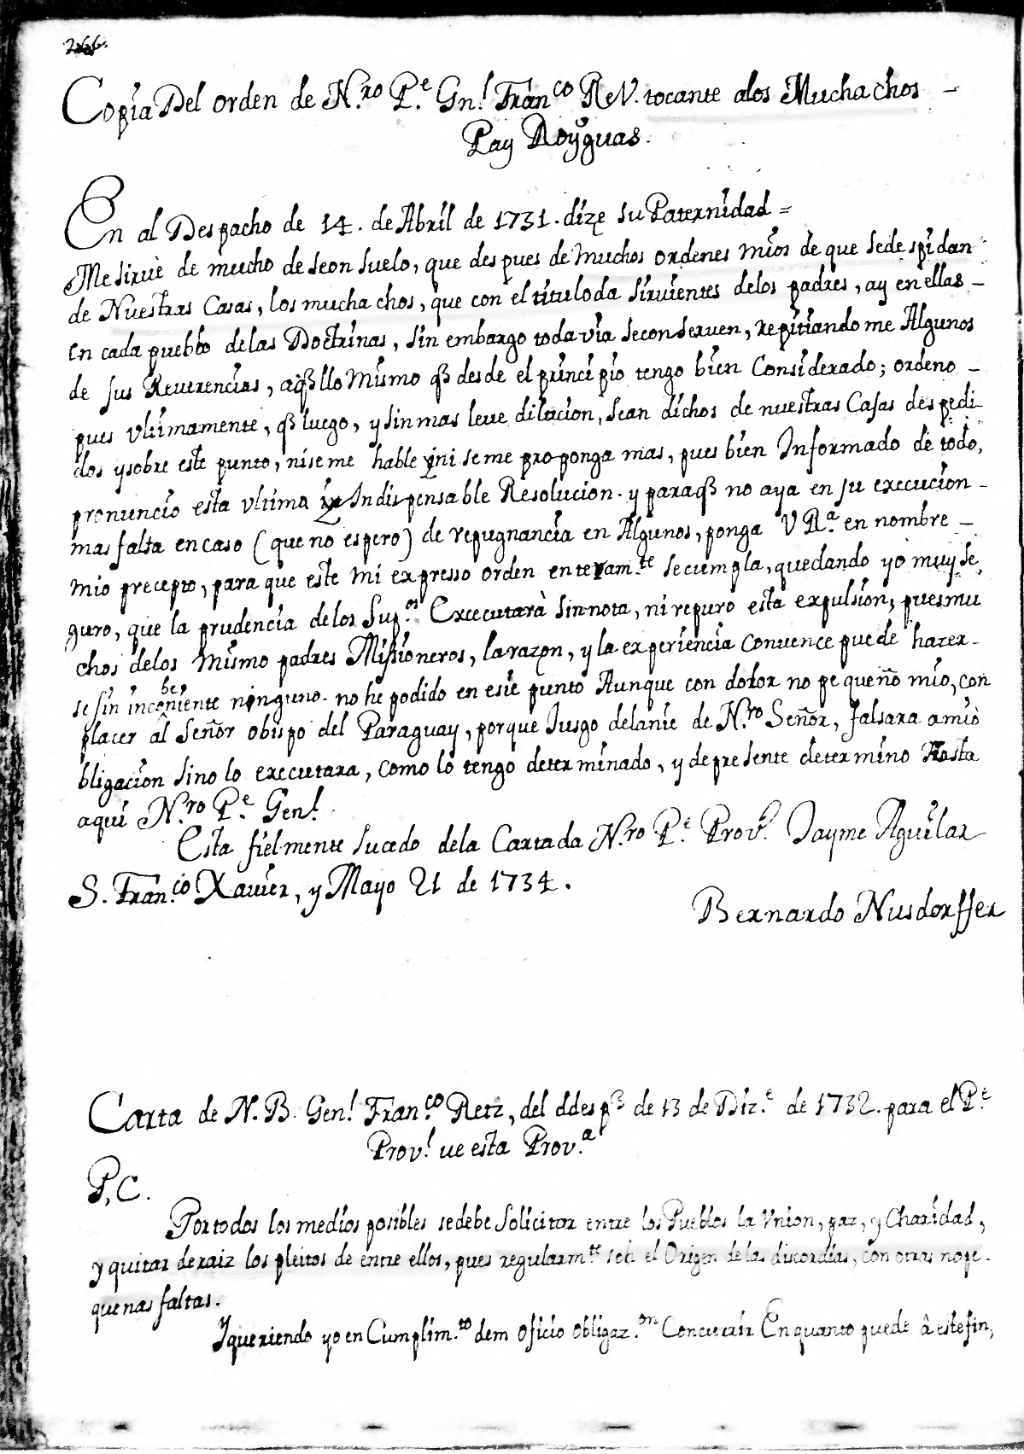 266.
Copia Del orden de N.ro P.e Gn.l Fran.co ReV. tocante alos Muchachos -
Pay Royguas.
En al Despacho de 14. de Abril de 1731. dize su Paternidad =
Me sirve de mucho deseonsuelo, que despues de muchos ordenes mios de que sedespidan
de Nuestras Casas, los muchachos, que con el tituloda sirvientes delos padres, ay en ellas -
En cada pueblo delas Doctrinas, sin embargo todavia seconserven, repitiando me Algunos
de sus Reverencias, aq̃llo mismo q̃ desde el principio tengo bien Considerado; ordeno -
pues vltimamente, q̃ luego, y sin mas leve dilacion, sean dichos de nuestras Casas despedi
dos y sobre este punto, ni se me hable ni se me proponga mas, pues bien Informado de todo,
pronuncio esta vltima Indispensable Resolucion. y paraq̃ no aya en su execucion -
mas falta encaso (que no espero) de repugnancia en Algunos, ponga V R.a en nombre -
mio precepto, para que este mi expresso orden enteram.te secumpla, quedando yo muy se,
guro, que la prudencia delos Sup.os Execcutarà sinnota, ni repuro esta expulsion; puesmu
chos delos mismo padres Missioneros, la razon, y la experiencia convence puede hazer -
se sin inconbeniente ninguno. no he podido en este punto Aunque con dolor no pequeño mio, con
placer âl Señor obispo del Paraguay, porque Jusgo delante de N.ro Señor, falsara amiò
bligacion sino lo executara, como lo tengo determinado, y depresente determino Hasta
aqui N.ro P.e Gen.l
Esta fielmente sucado dela Cartada N.ro P.e Prov.l Jayme Aguilar
S. Fran.co Xavier, y Mayo 21 de 1734.
Bernardo Nusdorffer
Carta de N. B. Gen.l Fran.co Retz, del ddesp.o de 13 de Diz.e de 1732. para el P.e
Prov.l ue esta Prov.a
P, C.
Portodos los medios posibles sedebe Solicitar entre los Pueblos la Vnion, paz, y Charidad,
y quitar deraiz los pleitos de entre ellos, pues regularm.te son el Origen de las discordias, con otras nope -
quenas faltas.
Yqueriendo yo en Cumplim.to dem oficio obligaz.on Concurrir Enquanto puede â estefin,